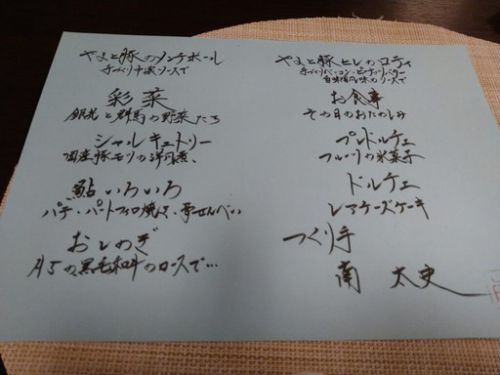 やまと豚のメンチボール
手づくり中濃ソースで
彩菜
銀光と群馬の野菜たち
シャルキュトリー
国産豚モツの洋風煮
鮎いろいろ
パテ・パートフィロ焼き・骨せんべい
おしのぎ
A5の黒毛和牛のロースで…
やまと豚ヒレのロティ
手づくりベーコン・ピーナツバター
のソースで
お食事
その日のおたのしみ
プレドルチェ
フルーツの氷菓子
ドルチェ
レアチーズケーキ
つくり手
南 太史